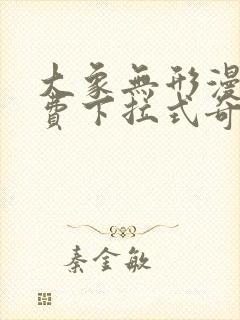 大象無形漫
費下拉式奇
秦金敏